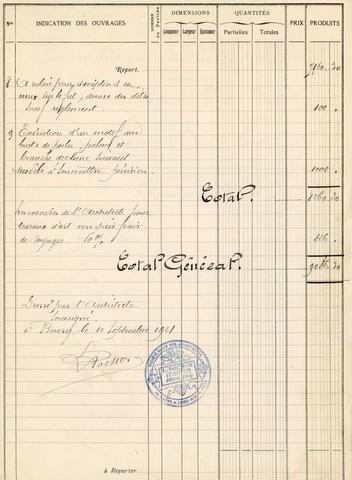 Nos INDICATION DES OUVRAGES NOMBRE de Parties DIMENSIONS Longueur Largeur Épaisseur QUANTITÉS Partielles Totales PRIX PRODUITS
Report. 7160.30
8 A valoir pour inscriptions en
creux sur le , dorure des dites
sauf règlement. 100 .
9 Exécution d'un motif une
et
branche de chêne suivant
modèle à soumettre prévision. 1000 .
Total. 8260.30
honoraires de l'Architecte pour
travaux d'art compris frais
de voyages 10% 826 .
Total Général. 9086.30
Dressé par l'Architecte
soussigné.
à Bourg le 10 Septembre 1921
L. Rochet
L. ROCHET
ARCHITECTE
à Reporter